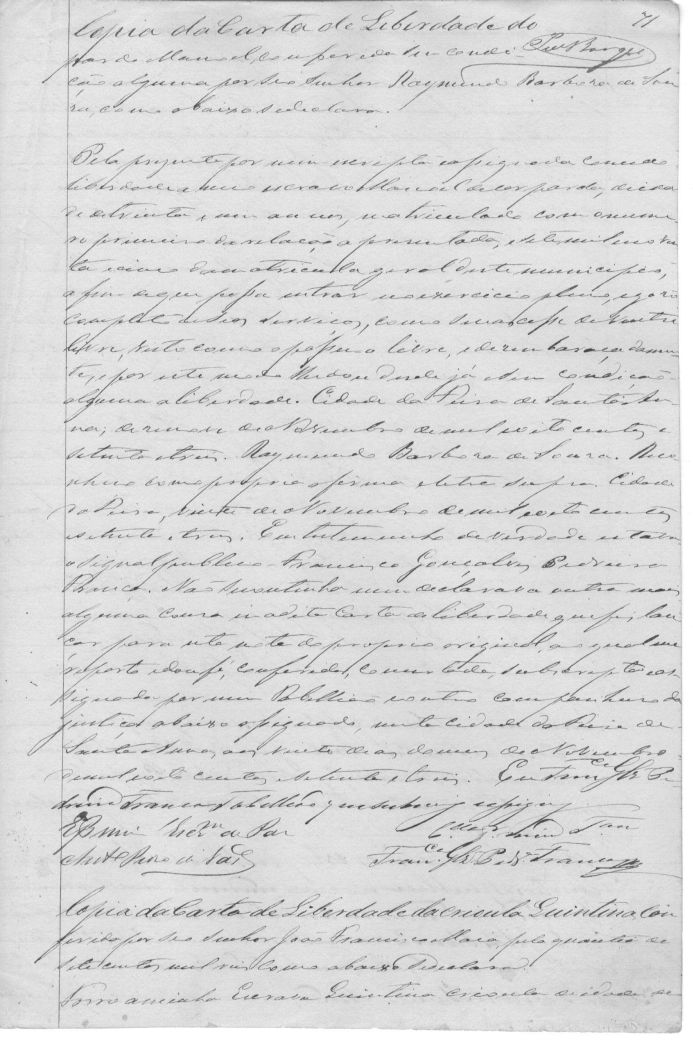 71
Copia da Carta de Liberdade do
pardo Manoel, conferida sem condi-
ção alguma por seo Senhor Raymundo Barboza de Sou-
za, como abaixo se declara.
Pela presente por mim escripta e assignada concedo
liberdade a meu escravo Manoel de cor parda, de idade
de trinta e um annos, matriculado com o nume-
ro primeiro da relação apresentada, e sete mil
da matricula geral deste municipio,
afim de que possa entrar no exercicio pleno, e gozo
completo de seos serviços, como se nascesse de ventre
livre, visto como o passo a livre, e desembaraçadamen-
te, e por este meio lhe dou desde já e sem condição
alguma a liberdade. Cidade da Feira de Santa An-
na, de Novembro de mil oito centos e
setenta e tres. Raymundo Barboza de Souza. Reco-
nheço como propria a firma e letra supra. Cidade
da Feira, vinte de Novembro de mil oito centos
e setenta e tres. Em testemunho de verdade estava
o signal publico. Francisco Gonçalves Pedreira
França. Não se continha nem declarava outra mais
alguma cousa na dita Carta de liberdade que fiz lan-
çar para esta nota do proprio original, ao qual me
reporto e dou fé, conferida, concertada, subscripta e as-
signada por mim Tabellião e outro companheiro da
justiça abaixo assignado, nesta cidade da Feira de
Santa Anna, aos vinte dias do mez de Novembro
de mil oito centos e setenta e tres. Eu Franco Glz Pe-
dreira França Tabellião que subscrevy e assigney
Franco Glz Pedra França
Copia da Carta de Liberdade da crioula Quintina, con-
ferida por seo senhor João Francisco Maia, pela quantia de
sete centos mil reis, como abaixo se declara.
Forro a minha Escrava Quintina crioula de idade de